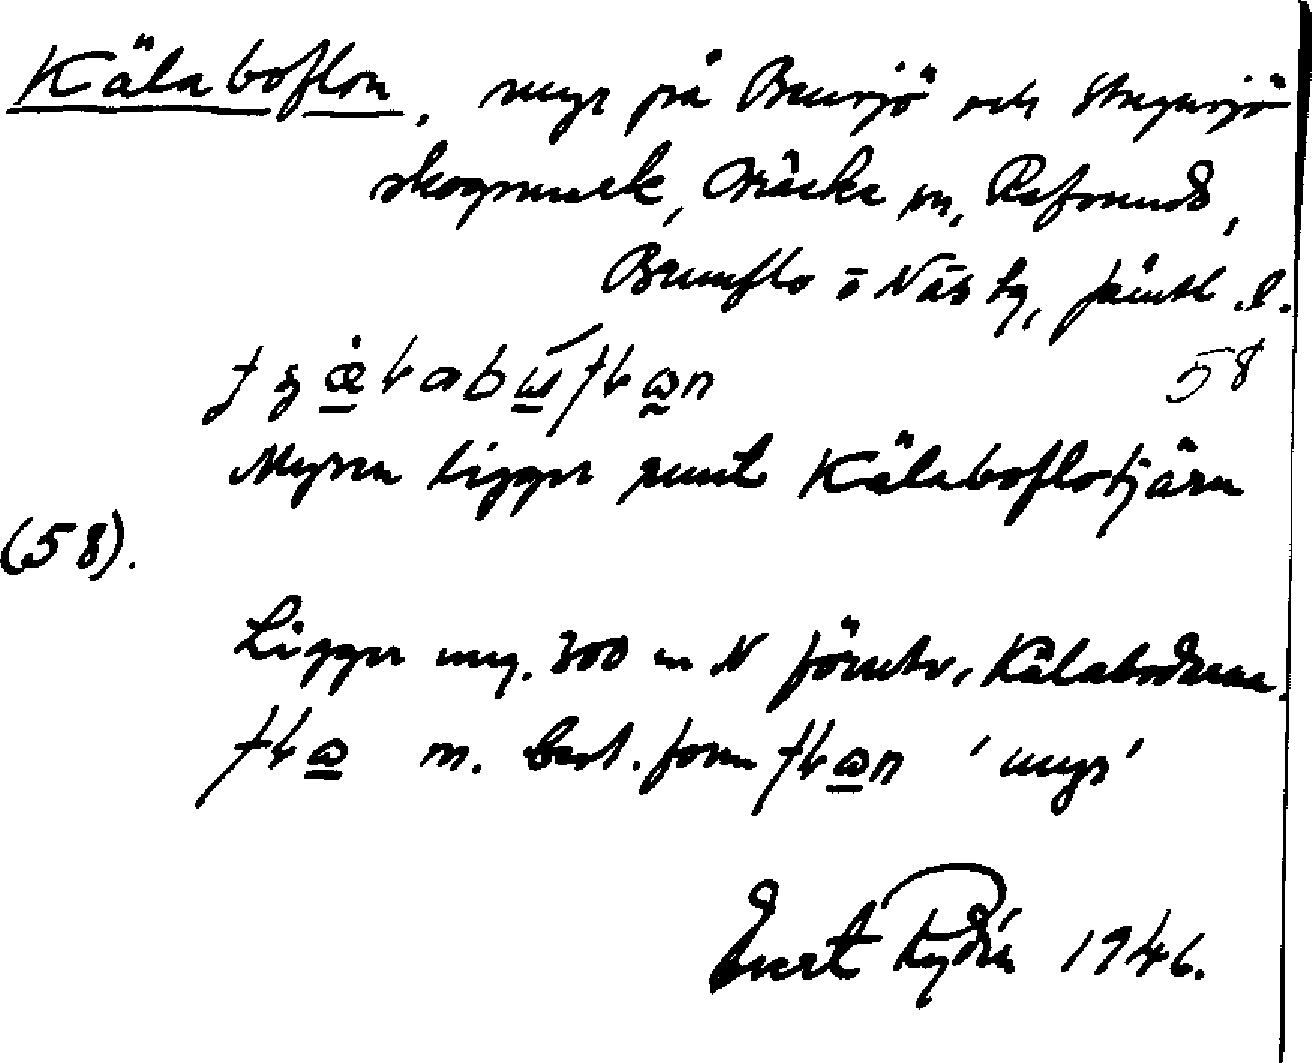 Kälaboflon, myr på Bensjö och Stugusjö
skogsmark, Bräcke sn, Refsunds,
Brunflo o Näs tg, Jämtl. l.
58
Myren ligger runt Kälaboflotjärn
(58).
Ligger ung. 300 m N förutv. Kälabodarna.
m. best. form 'myr'
Evert Rydén 1946.